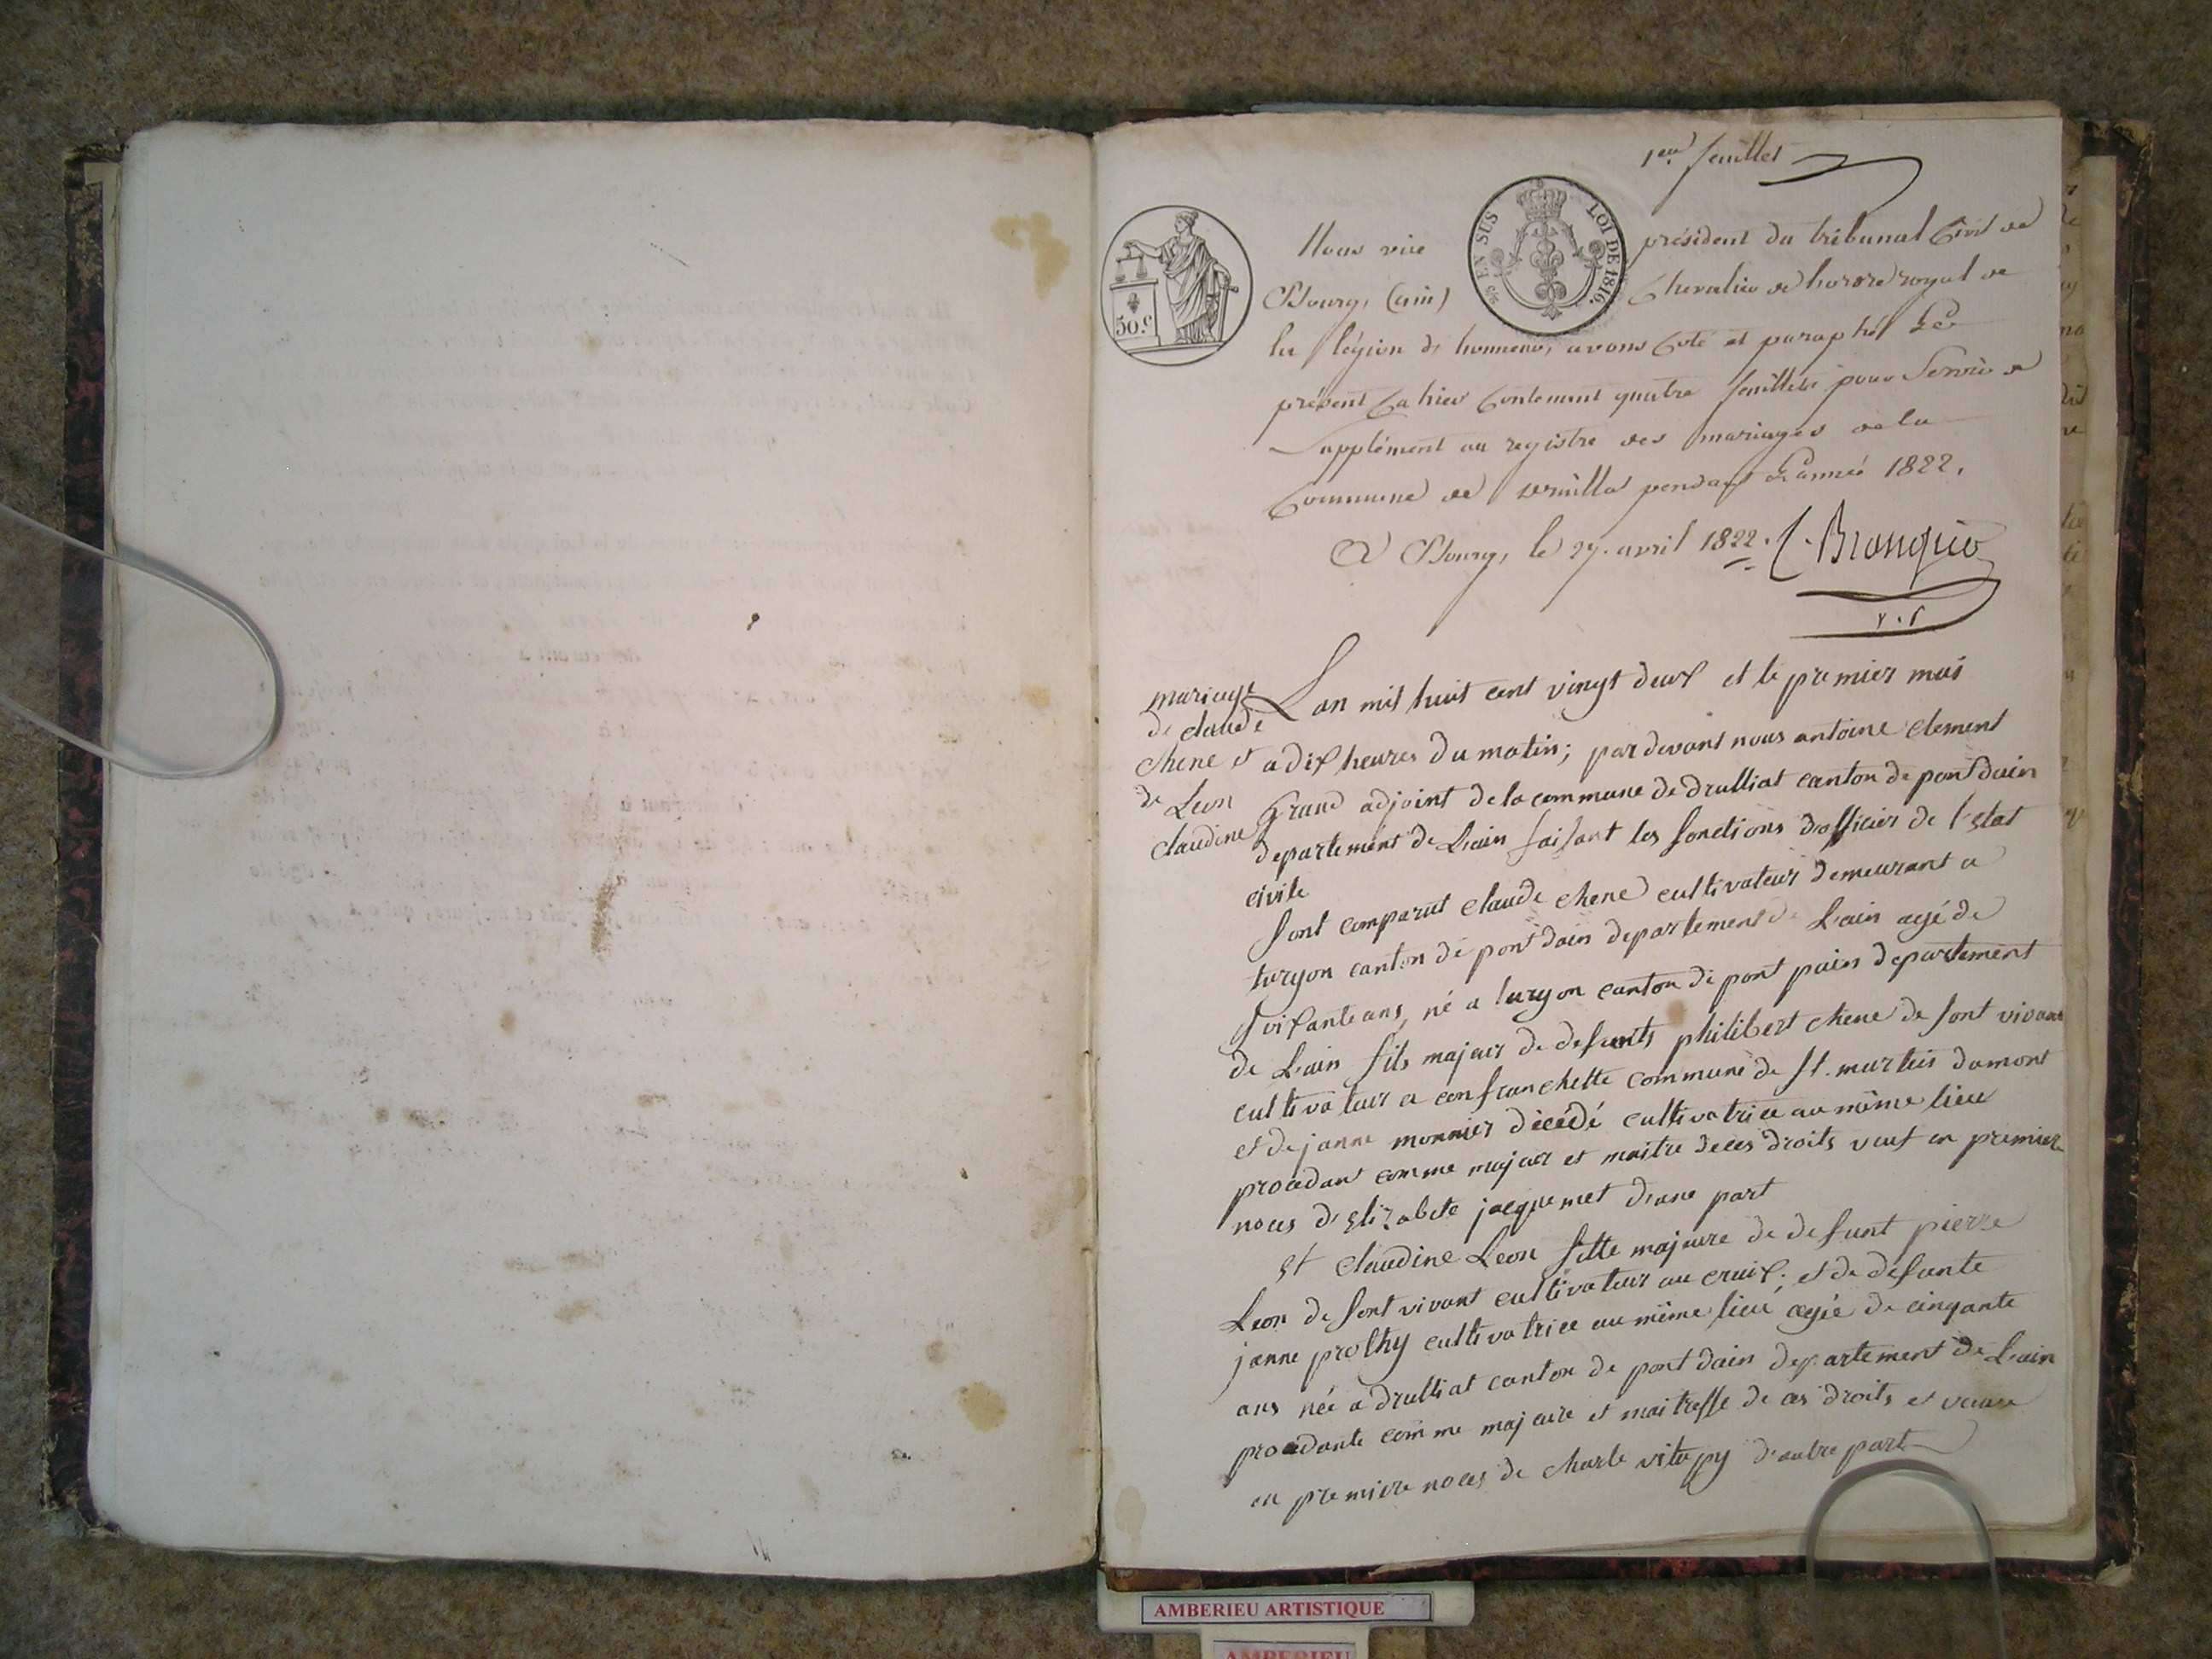 1er feuillet
EN SUS
LOI DE 1816.
50 c
Nous vice président du tribunal Civil de
Bourg, (ain) Chevalier de l'ordre royal de
la légion d'honneur, avons coté et paraphé Le
présent Cahier Contenant quatre feuillets pour Servir de
Supplément au registre des mariages de la
Commune de druillat pendant L'année 1822.
A Bourg, le 27. avril 1822.
mariage
de claude
chene et
de Leon
claudine
L an mil huit cent vingt deux et le premier mai
a dix heures du matin; par devant nous antoine clement
Grand adjoint de la commune de drulliat canton de pont dain
departement de L'ain faisant les fonctions d'officier de l'etat
civile
Sont comparut claude chene cultivateur demeurant a
turgon canton de pont dain departement de L'ain agé de
soixante ans, né a turgon canton de pont pain departement
de L'ain fils majeur de defunts philibert chene de sont vivant
cultivateur a confranchette commune de St. martin dumont
et de janne monnier décédé cultivatrice au même lieu
procedant comme majeur et maitre de ces droits veuf en premier
noces d'elizabete jacquemet d'une part
et claudine Leon fille majeure de defunt pierre
Leon de sont vivant cultivateur au cruix; et de defunte
janne prothy cultivatrice au même lieu, agée de cinqante
ans née a drulliat canton de pont dain departement de L'ain
procedante comme majeure et maitresse de ces droits et veuve
en premiere noces de charle vitapy d'autre part
AMBERIEU ARTISTIQUE
AMBERIEU